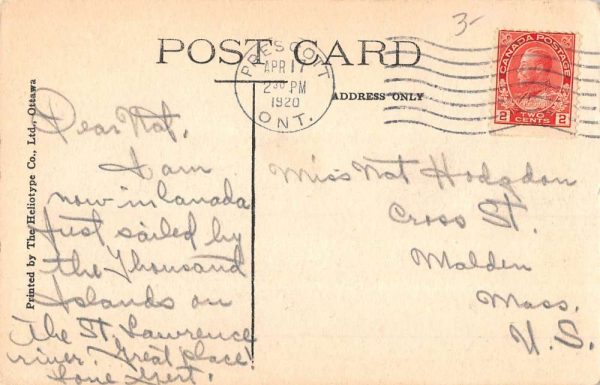 3-
POST CARD
CANADA POSTAGE
2 TWO CENTS 2
PRESCOTT
APR 17
2 30 PM
1920
ONT.
ADDRESS ONLY
Printed by The Heliotype Co., Ltd., Ottawa
Dear Nat,
I am
now in Canada
Just sailed by
the Thousand
Islands on
The St. Lawrence
river. Great place!
Gert.
Miss Nat Hodgdon
Cross St.
Malden
Mass.
U. S.